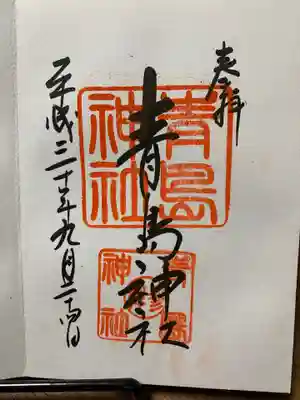 奉拝
青島神社
青島
神社
平成三十年九月二十四日